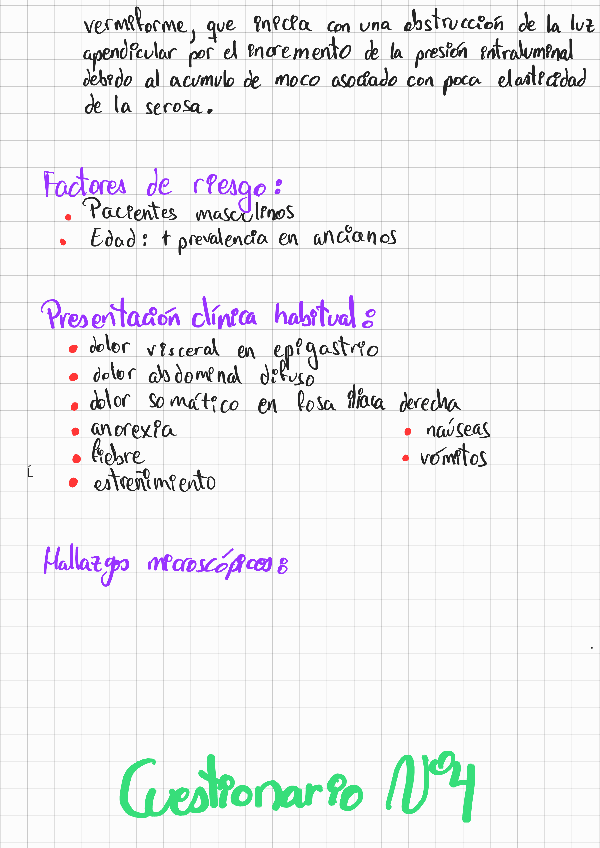 vermiforme, que inicia con una obstrucción de la luz
apendicular por el incremento de la presión intraluminal
debido al acumulo de moco asociado con poca elasticidad
de la serosa.
Factores de riesgo:
• Pacientes masculinos
• Edad: + prevalencia en ancianos
Presentación clínica habitual:
• dolor visceral en epigastrio
• dolor abdominal difuso
• dolor somático en fosa iliaca derecha
• anorexia • naúseas
• fiebre • vómitos
• estreñimiento
Hallazgos microscópicos:
Cuestionario Nº4